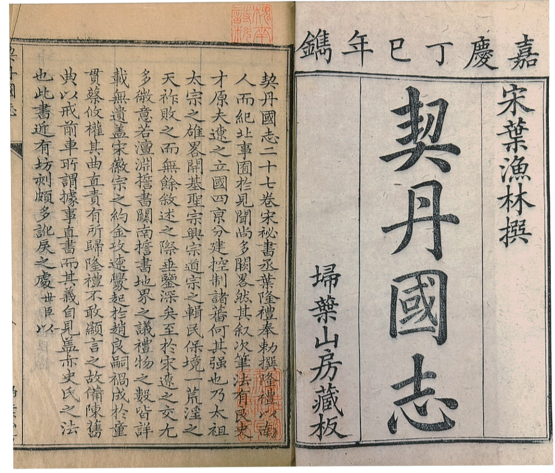 嘉慶丁巳年鐫
宋葉漁林撰
契丹國志
埽葉山房藏板
契丹國志二十七卷宋祕書丞葉隆禮奉勅撰隆禮以南
人而紀北事固於見聞尚多闕畧然其叙次筆法有良史
才原夫遼之立國四京分建控制諸蕃何其強也乃太祖
太宗之雄畧開基聖宗興宗道宗之輯民保境一荒淫之
天祚敗之而無餘敘述之際垂鑒深矣至於宋遼之交尤
多微意若澶淵誓書關南誓書地界之議禮物之數皆詳
載無遺蓋宋徽宗之約金攻遼釁起於趙良嗣禍成於童
貫蔡攸權其曲直責有所歸隆禮不敢顯言之故備陳舊
典以戒前車所謂據事直書而其義自見蓋亦史氏之法
也此書近有坊刻頗多訛戾之處世臣以
契丹國志